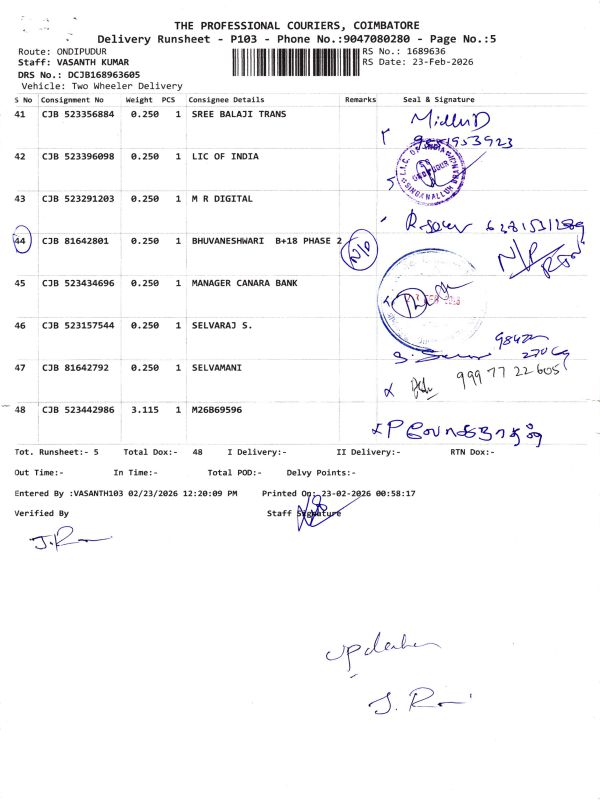 THE PROFESSIONAL COURIERS, COIMBATORE
Delivery Runsheet - P103 - Phone No.:9047080280 - Page No.:5
Route: ONDIPUDUR RS No.: 1689636
Staff: VASANTH KUMAR RS Date: 23-Feb-2026
DRS No.: DCJB168963605
Vehicle: Two Wheeler Delivery
S No Consignment No Weight PCS Consignee Details Remarks Seal & Signature
41 CJB 523356884 0.250 1 SREE BALAJI TRANS
42 CJB 523396098 0.250 1 LIC OF INDIA
43 CJB 523291203 0.250 1 M R DIGITAL
44 CJB 81642801 0.250 1 BHUVANESHWARI B+18 PHASE 2 N/P N/P RTN
45 CJB 523434696 0.250 1 MANAGER CANARA BANK
46 CJB 523157544 0.250 1 SELVARAJ S.
47 CJB 81642792 0.250 1 SELVAMANI 999 77 22605
48 CJB 523442986 3.115 1 M26B69596
Tot. Runsheet:- 5 Total Dox:- 48 I Delivery:- II Delivery:- RTN Dox:-
Out Time:- In Time:- Total POD:- Delvy Points:-
Entered By :VASANTH103 02/23/2026 12:20:09 PM Printed On: 23-02-2026 00:58:17
Verified By Staff Signature